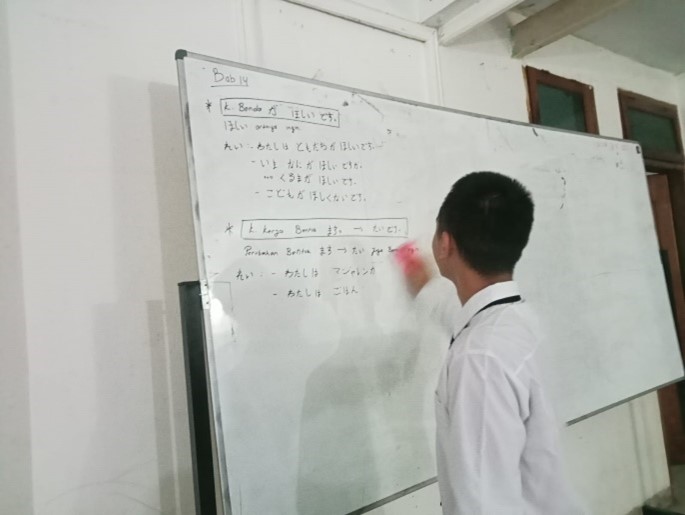 Bab 14
* k. Benda が ほしい です。
ほしい orange ngn.
れい : - わたしは ともだちが ほしいです。
- いま なにが ほしい ですか。
... くるまが ほしいです。
- こどもが ほしくないです。
* k. kerja Bentuk ます。 → たいです。
Perubahan Bentuk ます → たい juga
れい : - わたしは
- わたしは ごはん